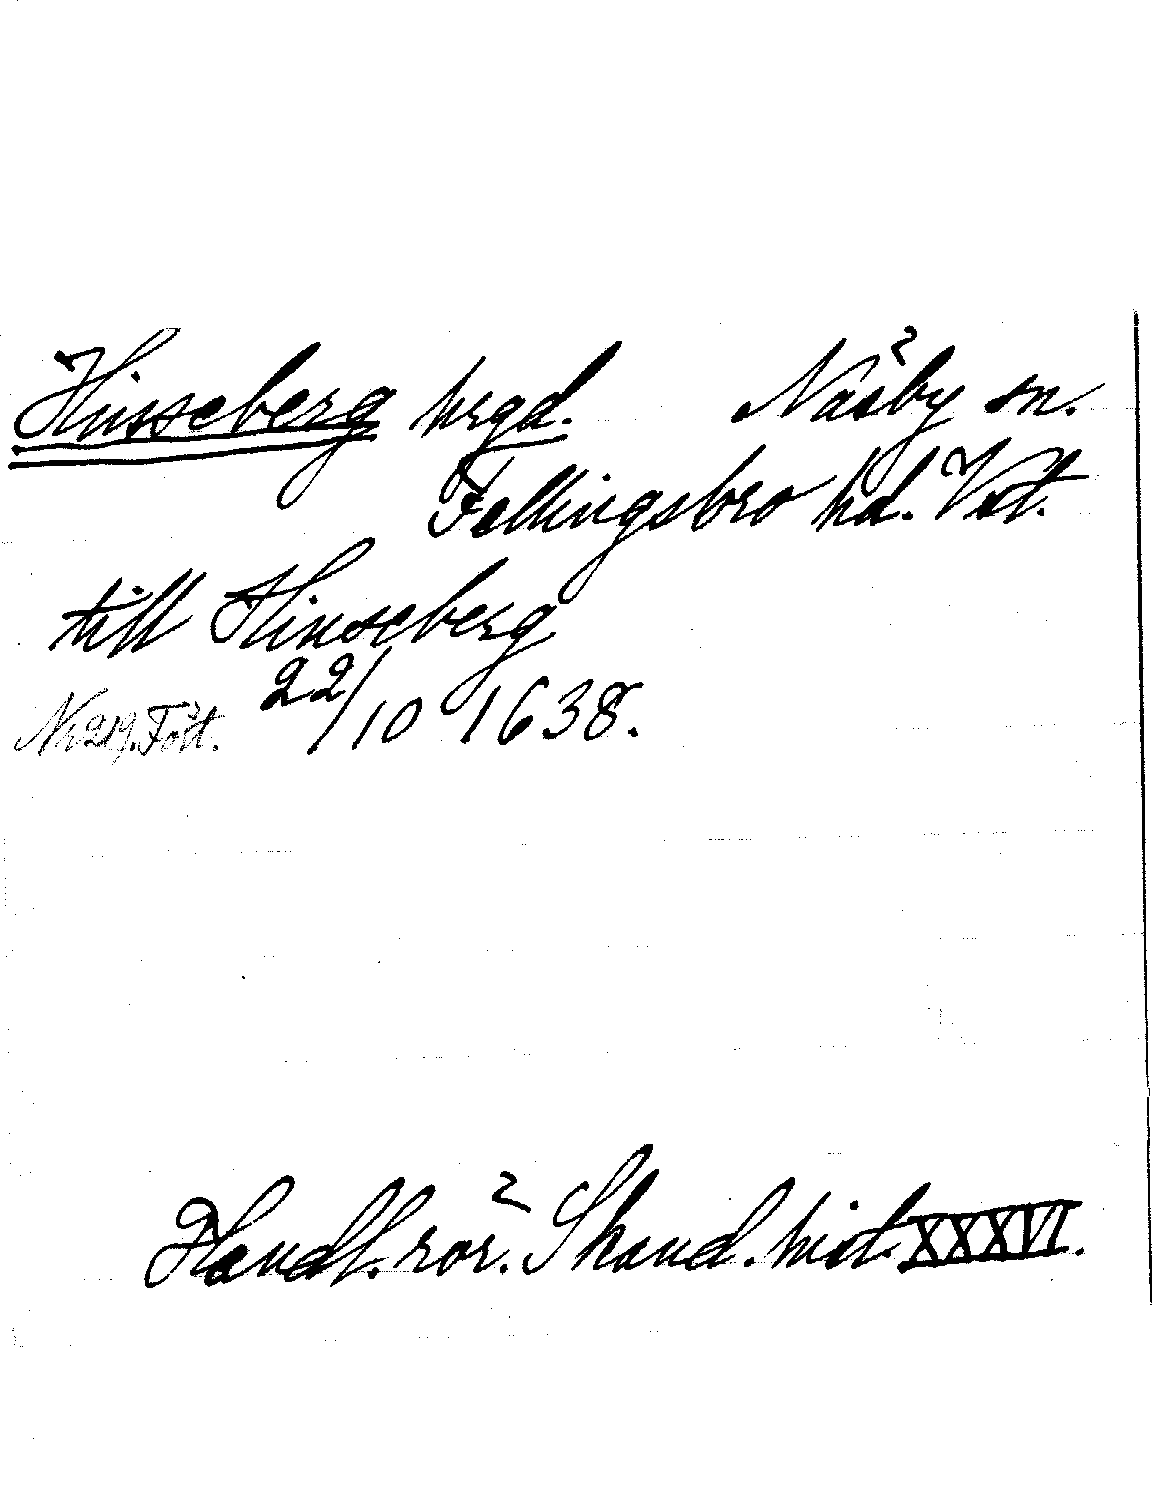 Hinseberg hrgd. Näsby sn.
Fellingsbro hd. Vstm.
till Hinseberg
Nr 219. Fört. 22/10 1638.
Handl. rör. Skand. hist. XXXVI.